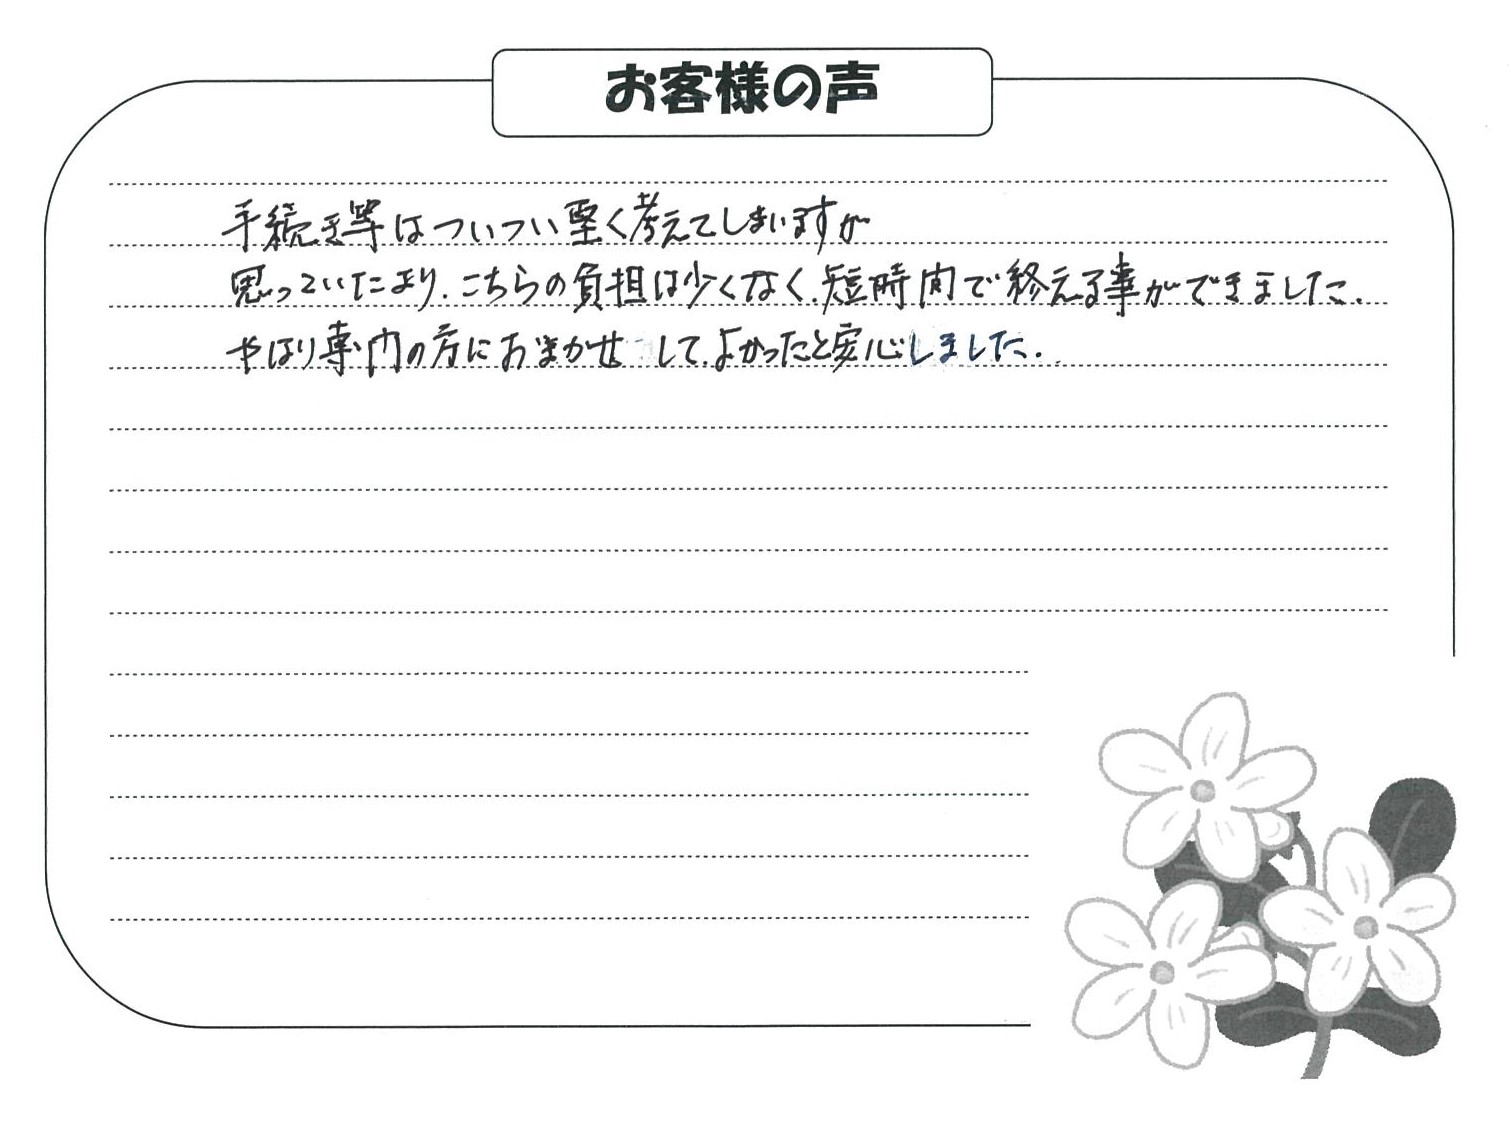 お客様の声
手続き等はついつい堅く考えてしまいますが
思っていたより、こちらの負担は少くなく、短時間で終える事ができました。
やはり専門の方におまかせ して、よかったと安心しました。